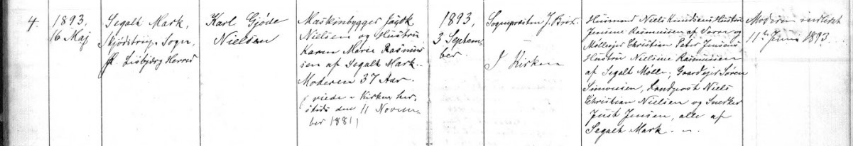 4.
1893.
16 Maj
Segalt Mark,
Hjødstrup Sogn,
Ø. Lisbjerg Herred
Karl Gjøde
Nielsen
Maskinbygger
Nielsen og Hustru
Karen Marie Rasmus-
sen af Segalt Mark.
Moderen 37 Aar.
(viede i Kirken her-
steds den 11 Novem-
ber 1881)
1893.
3 Septem-
ber
Sognepræsten J.
I Kirken
Huusmand Niels Knudsens Hustru
Jensine Rasmussen af
Møllesvend Christian Peter Jensens
Hustru Nielsine Rasmussen
af Segalt Mølle, Gaardejer Søren
Simonsen, Landpost Niels
Christian Nielsen og Snedker
Just Jensen, alle af
Segalt Mark.
Moderen indledet
11te Juni 1893.